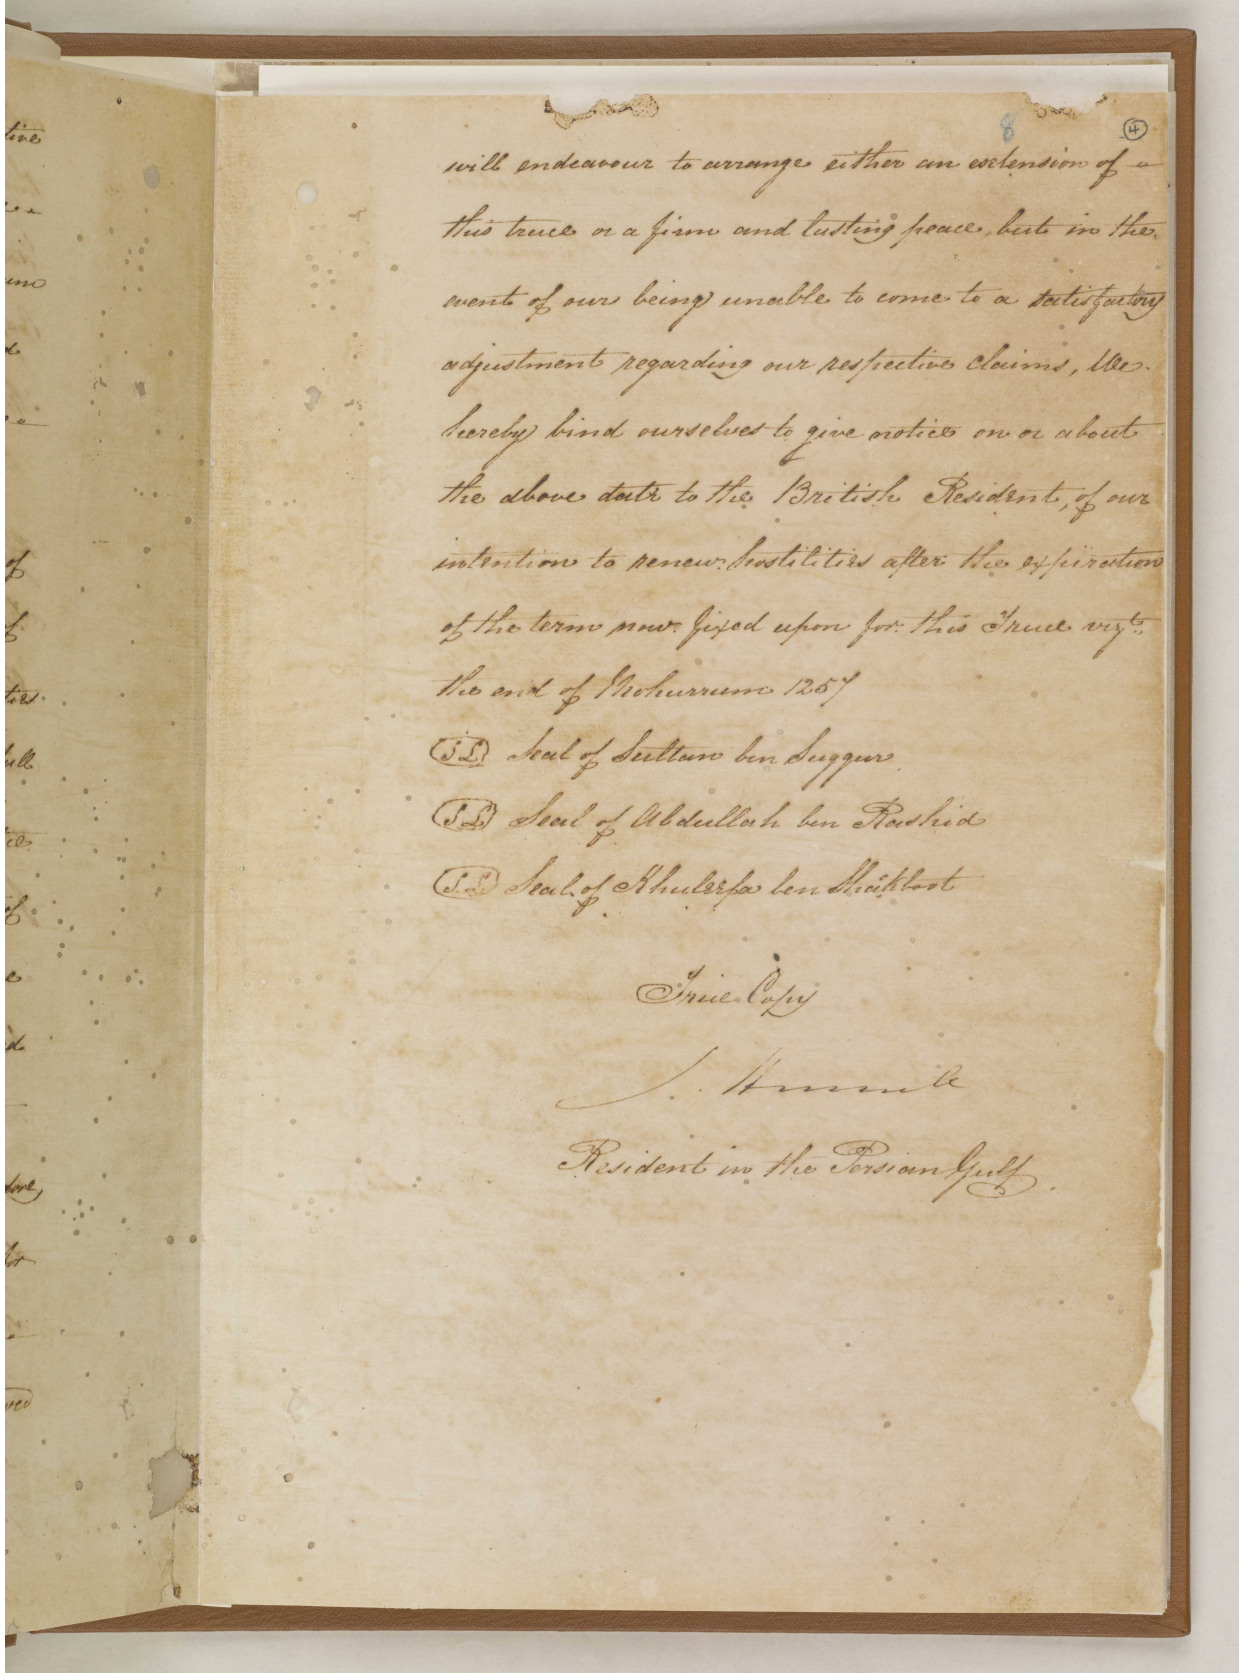 8
4
will endeavour to arrange either an extension of
this truce or a firm and lasting peace, but in the
event of our being unable to come to a satisfactory
adjustment regarding our respective claims, We
hereby bind ourselves to give notice on or about
the above date to the British Resident, of our
intention to renew hostilities after the expiration
of the term now fixed upon for this Truce vizt.
the end of Mohurrum 1257
S L Seal of Sultan ben Suggur
S L Seal of Abdullah ben Rashid
S L Seal of Khuleefa ben Shakboot
True Copy
Resident in the Persian Gulf.